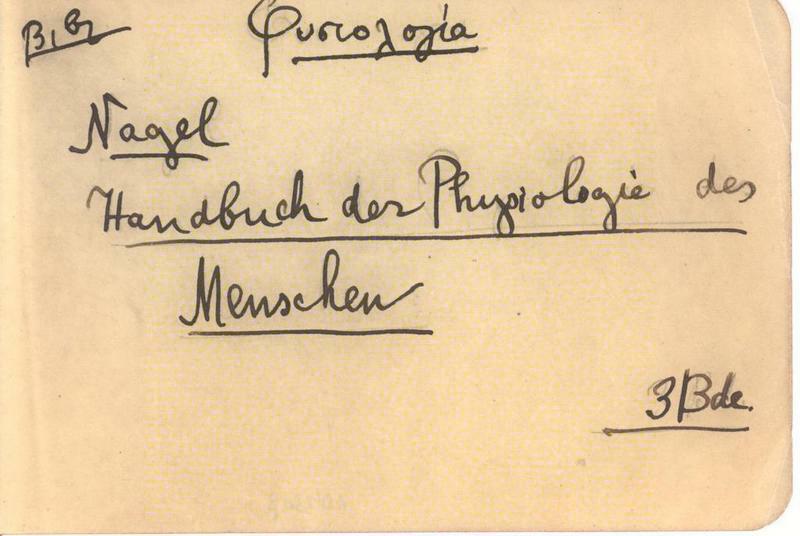 Βιβλ Φυσιολογία
Nagel
Handbuch der Physiologie des
Menschen
3 Bde.